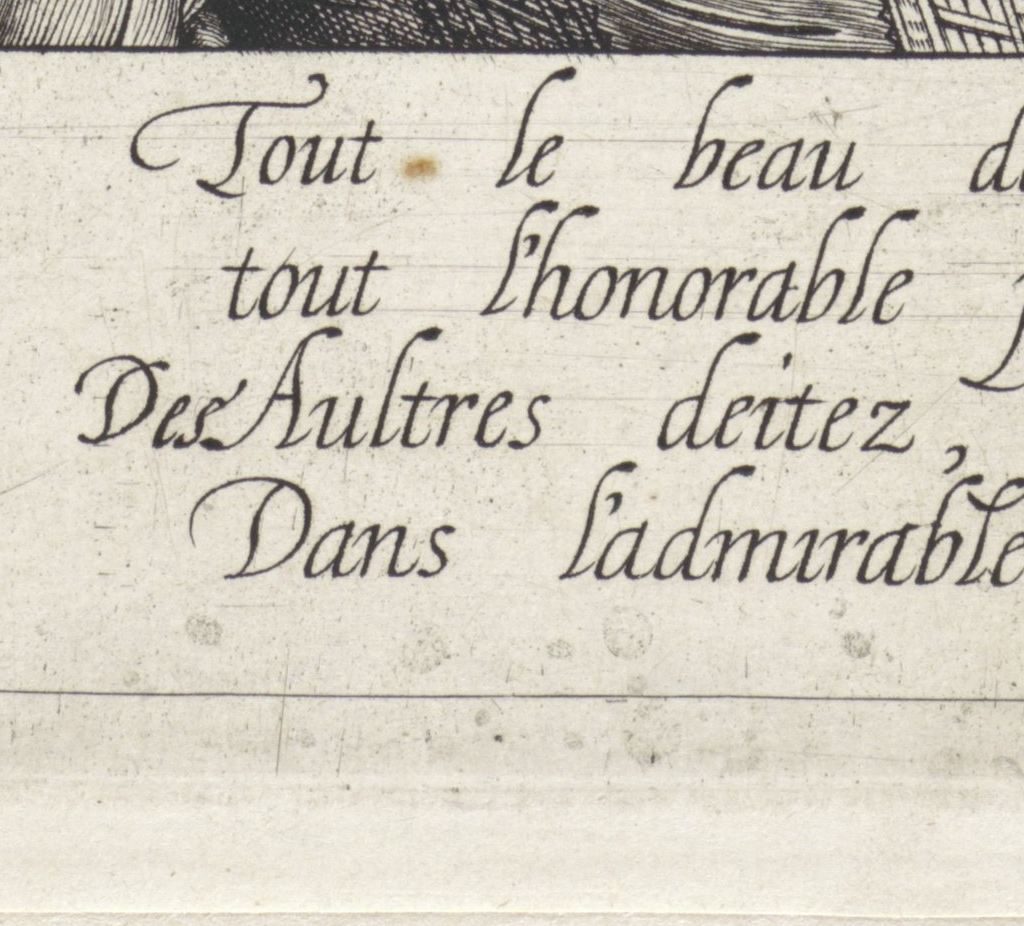 Tout le beau
tout l'honorable
Des Aultres deitez,
Dans l'admirable